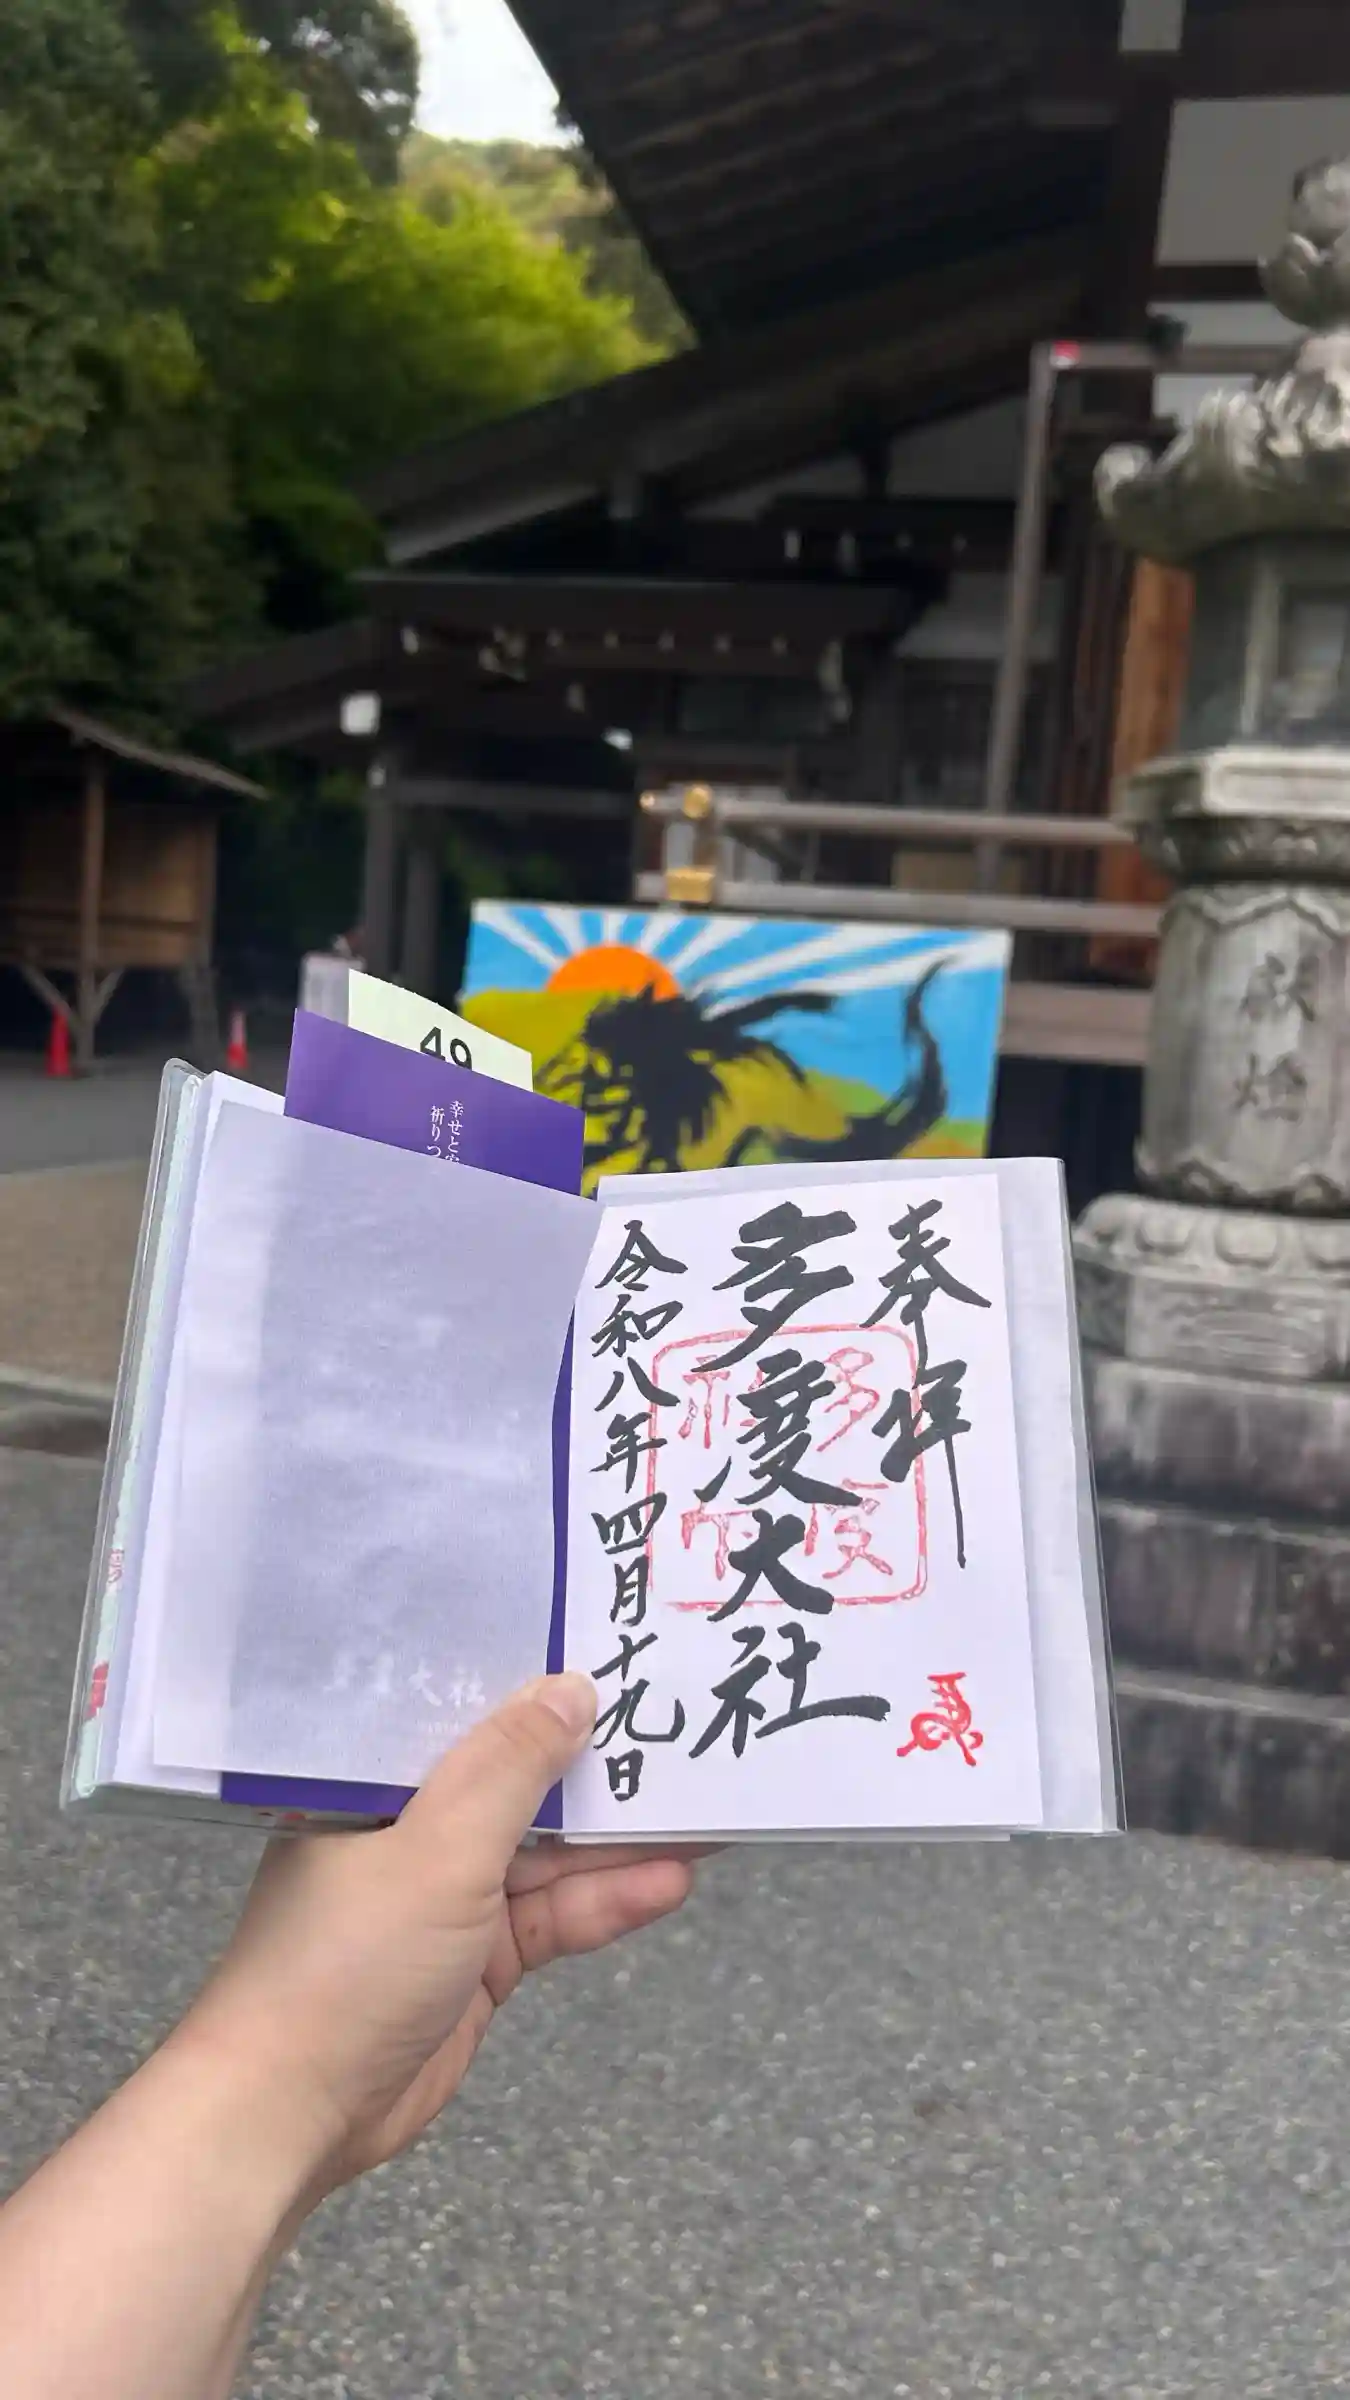 49
幸せと
祈りつ
奉拝
多度大社
令和八年四月十九日
献燈